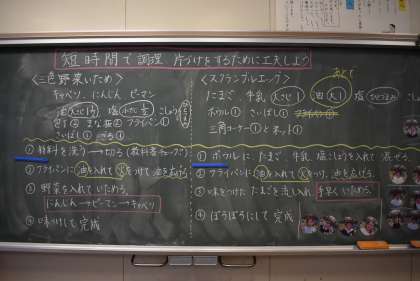 短時間で調理 片づけをするために工夫しよう
<三色野菜いため>
キャベツ、にんじん ピーマン
油 大さじ1½ 塩 小さじ½ こしょう
包丁② まな板② フライパン①
さいばし① ざる①
① 材料を洗う→切る(教科書チェック)
② フライパンに油を入れて火をつけて油を広げる
③ 野菜を入れていためる。
にんじん→ピーマン→キャベツ
④ 味つけして完成
<スクランブルエッグ>
あとで
たまご、牛乳 大さじ1 油 大1 塩
ボウル① さいばし① フライパン①
三角コーナー①とネット①
① ボウルに たまご、牛乳 塩こしょうを入れて 混ぜる。
② フライパンに油を入れて火をつけ、油を広げる
③ 味をつけた たまごを流し入れ 手早くいためる。
④ ぽろぽろにして 完成